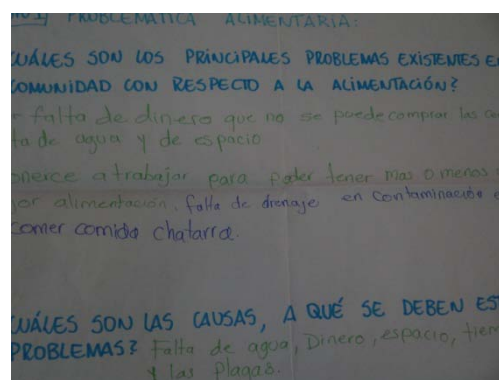 PROBLEMÁTICA ALIMENTARIA:
CUÁLES SON LOS PRINCIPALES PROBLEMAS EXISTENTES EN
COMUNIDAD CON RESPECTO A LA ALIMENTACIÓN?
falta de dinero que no se puede comprar las
de agua y de espacio
ponerce a trabajar para poder tener mas o menos
alimentación, falta de drenaje en contaminación
Comer comida chatarra.
CUÁLES SON LAS CAUSAS, A QUÉ SE DEBEN
PROBLEMAS? Falta de agua, Dinero, espacio,
y las Plagas.